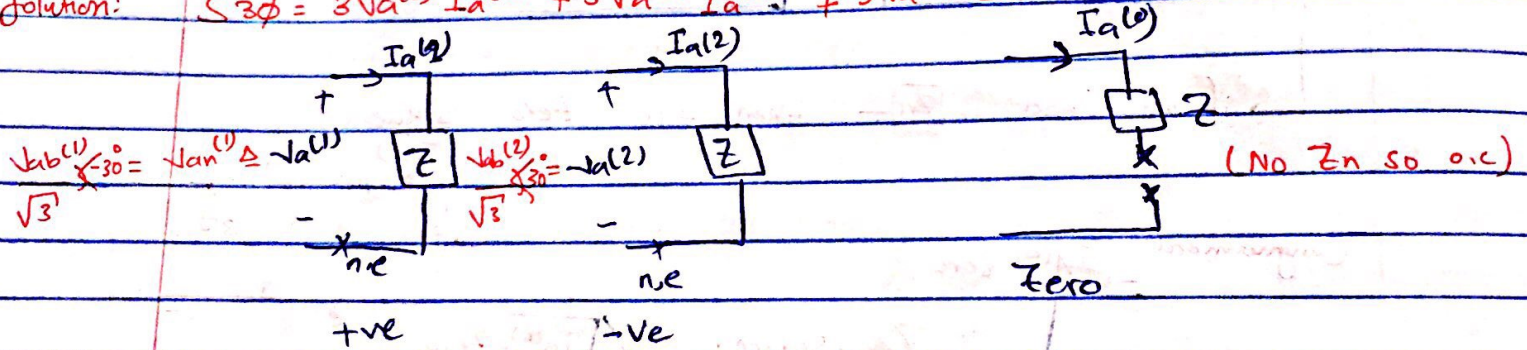 Solution: S3ϕ = 3Va Ia + 3Va Ia +
Ia(1) Ia(2) Ia(0)
+ +
Vab(1) ∠-30° = Van(1) ≜ Va(1) Z Vab(2) ∠30° = Va(2) Z Z (No Zn so o.c)
√3 √3
- -
n,e n,e Zero
+ve -ve